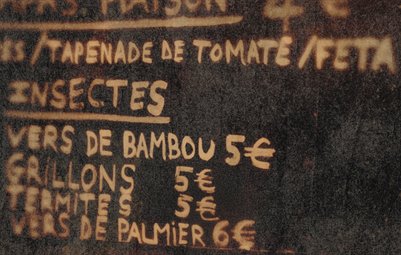 MAISON 4€
/TAPENADE DE TOMATE/FETA
INSECTES
VERS DE BAMBOU 5€
GRILLONS 5€
TERMITES 5€
VERS DE PALMIER 6€